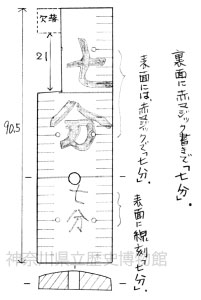 裏面に赤マジック書きで「七分」.
表面には赤マジックで「七分」.
表面に線刻「七分」.
欠落
21
90.5
七
分
七分
神奈川県立歴史博物館